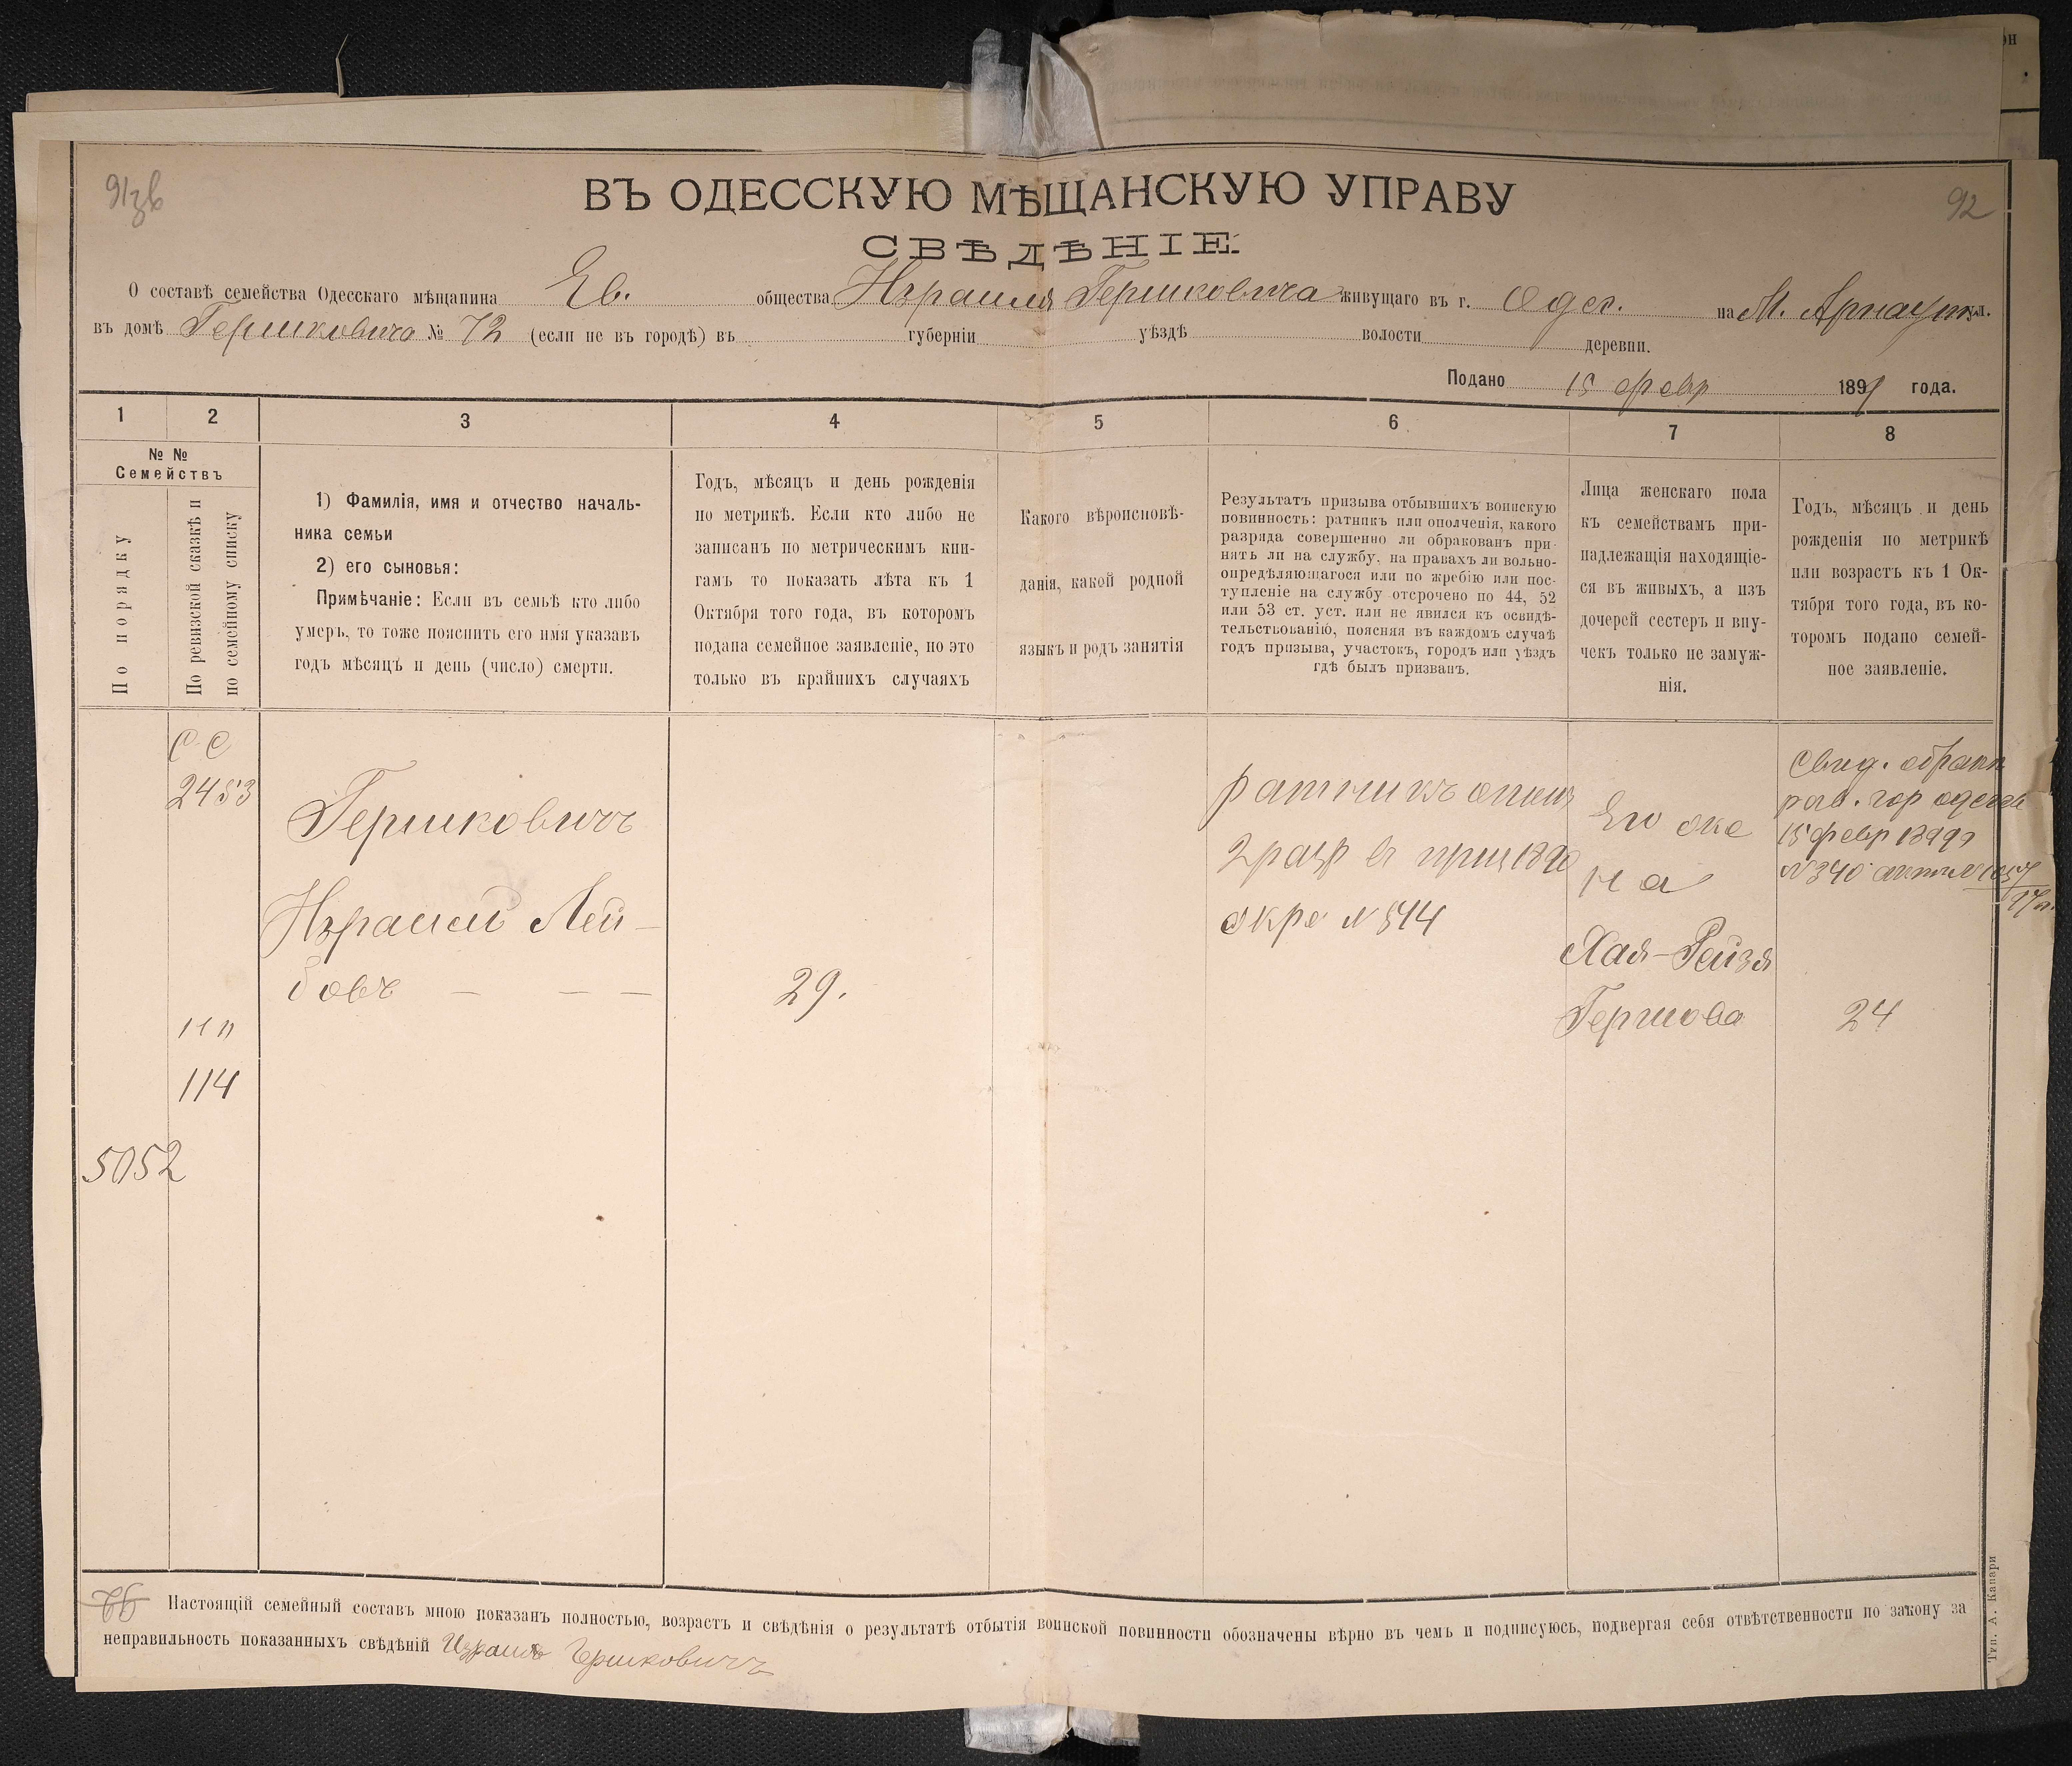 91 зв
92
ВЪ ОДЕССКУЮ МѢЩАНСКУЮ УПРАВУ
СВѢДѢНІЕ
О составѣ семейства Одесскаго мѣщанина Ев. общества Израиля Гершковича живущаго въ г. Одес. на М. Арнаут. ул.
въ домѣ Гершковича № 72 (если не въ городѣ) въ губерніи уѣздѣ волости деревни.
Подано 15 февр 1899 года.
1 2 3 4 5 6 7 8
№ №
Семействъ
По порядку
По ревизской сказкѣ и
по семейному списку
1) Фамилія, имя и отчество началь-
ника семьи
2) его сыновья:
Примѣчаніе: Если въ семьѣ кто либо
умеръ, то тоже пояснить его имя указавъ
годъ мѣсяцъ и день (число) смерти.
Годъ, мѣсяцъ и день рожденія
по метрикѣ. Если кто либо не
записанъ по метрическимъ кни-
гамъ то показать лѣта къ 1
Октября того года, въ которомъ
подана семейное заявленіе, но это
только въ крайнихъ случаяхъ
Какого вѣроисповѣ-
данія, какой родной
языкъ и родъ занятія
Результатъ призыва отбывшихъ воинскую
повинность: ратникъ или ополченія, какого
разряда совершенно ли обракованъ при-
нятъ ли на службу, на правахъ ли вольно-
опредѣляющагося или по жребію или пос-
тупленіе на службу отсрочено по 44, 52
или 53 ст. уст. или не явился къ освидѣ-
тельствованію, поясняя въ каждомъ случаѣ
годъ призыва, участокъ, городъ или уѣздъ
гдѣ былъ призванъ.
Лица женскаго пола
къ семействамъ при-
надлежащія находящіе-
ся въ живыхъ, а изъ
дочерей сестеръ и вну-
чекъ только не замуж-
нія.
Годъ, мѣсяцъ и день
рожденія по метрикѣ
или возрастъ къ 1 Ок-
тября того года, въ ко-
торомъ подано семей-
ное заявленіе.
С С
2453
114
5052
Гершковичъ
Израиль Лей-
бовъ — — —
29.
ратникъ ополч
2 разр в приз 1890
окро № 544
Его же
на
Хая-Рейзя
Гершова
Свид. обракѣ
рав. гор одессы
15 февр 1899
№ 340
24
Настоящій семейный составъ мною показанъ полностью, возрастъ и свѣдѣнія о результатѣ отбытія воинской повинности обозначены вѣрно въ чемъ и подписуюсь, подвергая себя отвѣтственности по закону за
неправильность показанныхъ свѣдѣній Израиль Гершковичъ
Тип. А. Капари